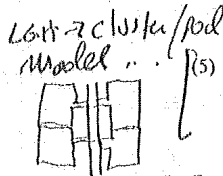 → cluster/pod
model ..
(5)